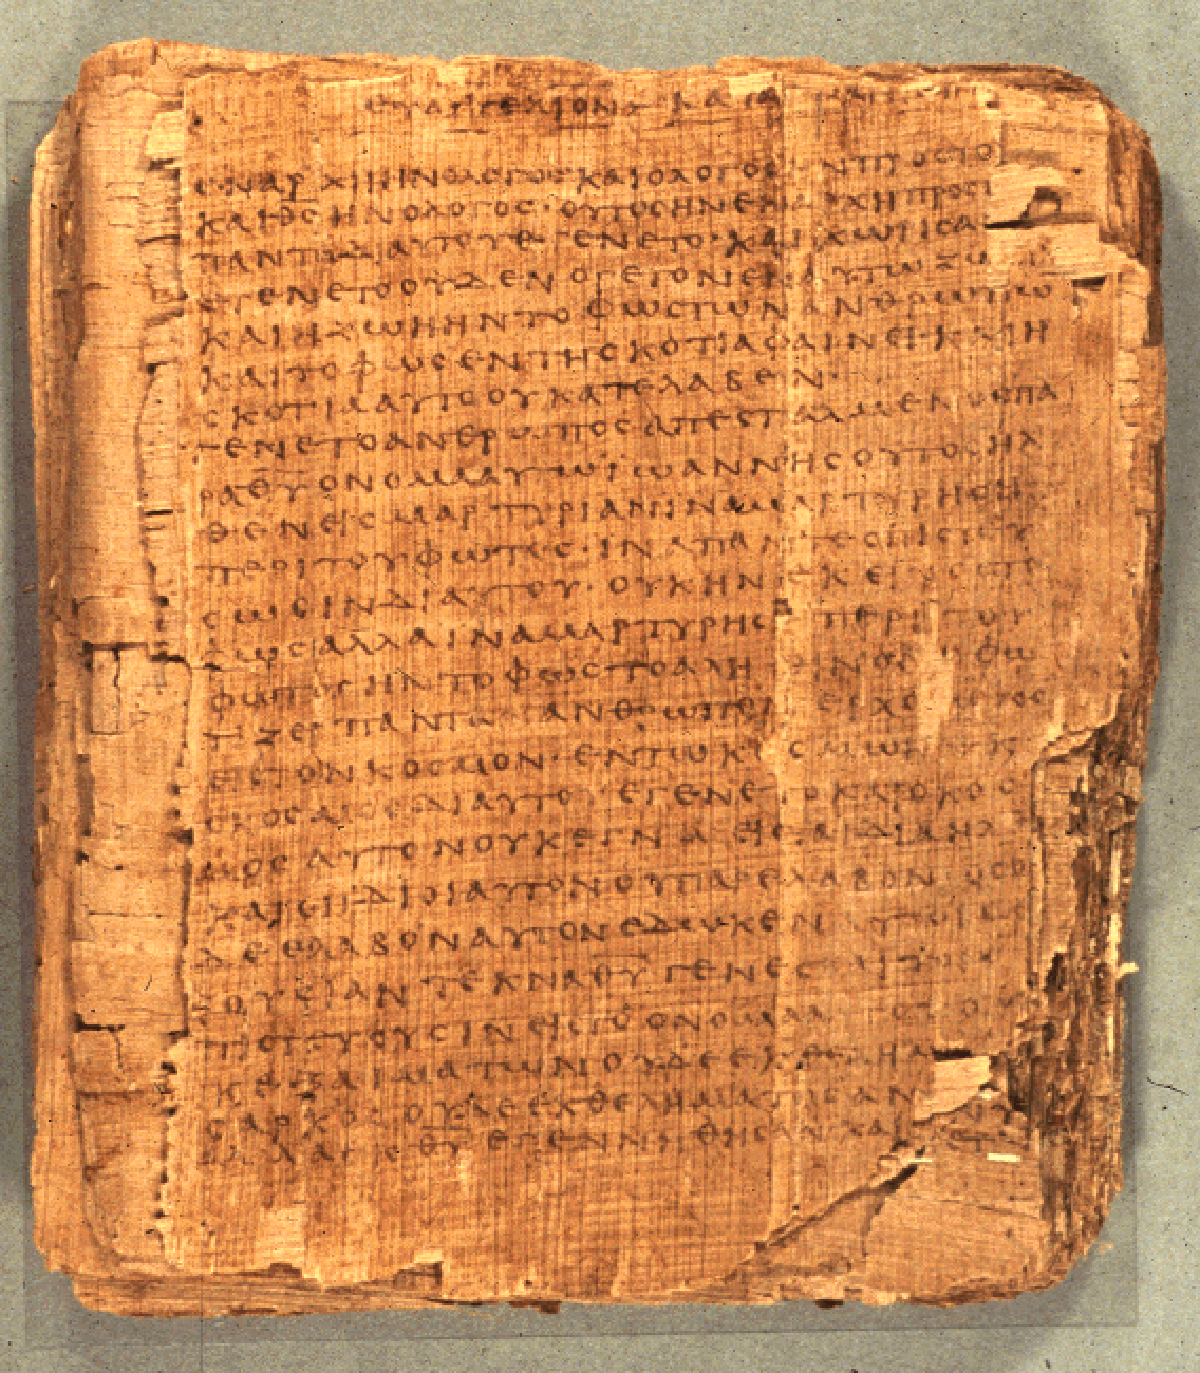 ΕΥΑΓΓΕΛΙΟΝ ΚΑΤΑ
ΕΝ ΑΡΧΗ ΗΝ Ο ΛΟΓΟΣ ΚΑΙ Ο ΛΟΓΟΣ ΗΝ ΠΡΟΣ ΤΟ
ΚΑΙ ΘΣ ΗΝ Ο ΛΟΓΟΣ · ΟΥΤΟΣ ΗΝ ΕΝ ΑΡΧΗ ΠΡΟΣ Τ
ΠΑΝΤΑ ΔΙ ΑΥΤΟΥ ΕΓΕΝΕΤΟ · ΚΑΙ ΧΩΡΙΣ Α
ΕΓΕΝΕΤΟ ΟΥΔΕΝ Ο ΓΕΓΟΝΕΝ ΕΝ ΑΥΤΩ ΖΩ
ΚΑΙ Η ΖΩΗ ΗΝ ΤΟ ΦΩΣ ΤΩΝ ΑΝΘΡΩΠΩ
ΚΑΙ ΤΟ ΦΩΣ ΕΝ ΤΗ ΣΚΟΤΙΑ ΦΑΙΝΕΙ · ΚΑΙ Η
ΣΚΟΤΙΑ ΑΥΤΟ ΟΥ ΚΑΤΕΛΑΒΕΝ ·
ΕΓΕΝΕΤΟ ΑΝΘΡΩΠΟΣ ΑΠΕΣΤΑΛΜΕΝΟΣ ΠΑ
ΡΑ ΘΥ ΟΝΟΜΑ ΑΥΤΩ ΙΩΑΝΝΗΣ ΟΥΤΟΣ ΗΛ
ΘΕΝ ΕΙΣ ΜΑΡΤΥΡΙΑΝ ΙΝΑ ΜΑΡΤΥΡΗΣΗ
ΠΕΡΙ ΤΟΥ ΦΩΤΟΣ · ΙΝΑ ΠΑΝΤΕΣ ΠΙΣΤΕΥ
ΣΩΣΙΝ ΔΙ ΑΥΤΟΥ · ΟΥΚ ΗΝ ΕΚΕΙΝΟΣ ΤΟ
ΦΩΣ ΑΛΛΑ ΙΝΑ ΜΑΡΤΥΡΗΣΗ ΠΕΡΙ ΤΟΥ
ΦΩΤΟΣ ΗΝ ΤΟ ΦΩΣ ΤΟ ΑΛΗΘΙΝΟΝ Ο ΦΩ
ΤΙΖΕΙ ΠΑΝΤΑ ΑΝΘΡΩΠΟΝ ΕΡΧΟΜΕΝΟΝ
ΕΙΣ ΤΟΝ ΚΟΣΜΟΝ · ΕΝ ΤΩ ΚΟΣΜΩ ΗΝ ΚΑΙ Ο
ΚΟΣΜΟΣ ΔΙ ΑΥΤΟΥ ΕΓΕΝΕΤΟ ΚΑΙ Ο ΚΟΣ
ΜΟΣ ΑΥΤΟΝ ΟΥΚ ΕΓΝΩ ΕΙΣ ΤΑ ΙΔΙΑ ΗΛΘΕ
ΚΑΙ ΟΙ ΙΔΙΟΙ ΑΥΤΟΝ ΟΥ ΠΑΡΕΛΑΒΟΝ · ΟΣΟΙ
ΔΕ ΕΛΑΒΟΝ ΑΥΤΟΝ ΕΔΩΚΕΝ ΑΥΤΟΙΣ ΕΞ
ΟΥΣΙΑΝ ΤΕΚΝΑ ΘΥ ΓΕΝΕΣΘΑΙ ΤΟΙΣ
ΠΙΣΤΕΥΟΥΣΙΝ ΕΙΣ ΤΟ ΟΝΟΜΑ ΑΥΤΟΥ ΟΙ ΟΥ
Κ ΕΞ ΑΙΜΑΤΩΝ ΟΥΔΕ ΕΚ ΘΕΛΗΜΑ
ΣΑΡΚΟΣ ΟΥΔΕ ΕΚ ΘΕΛΗΜΑΤΟΣ ΑΝ
ΑΛΛΑ ΕΚ ΘΥ ΕΓΕΝΝΗΘΗΣΑΝ ΚΑΙ